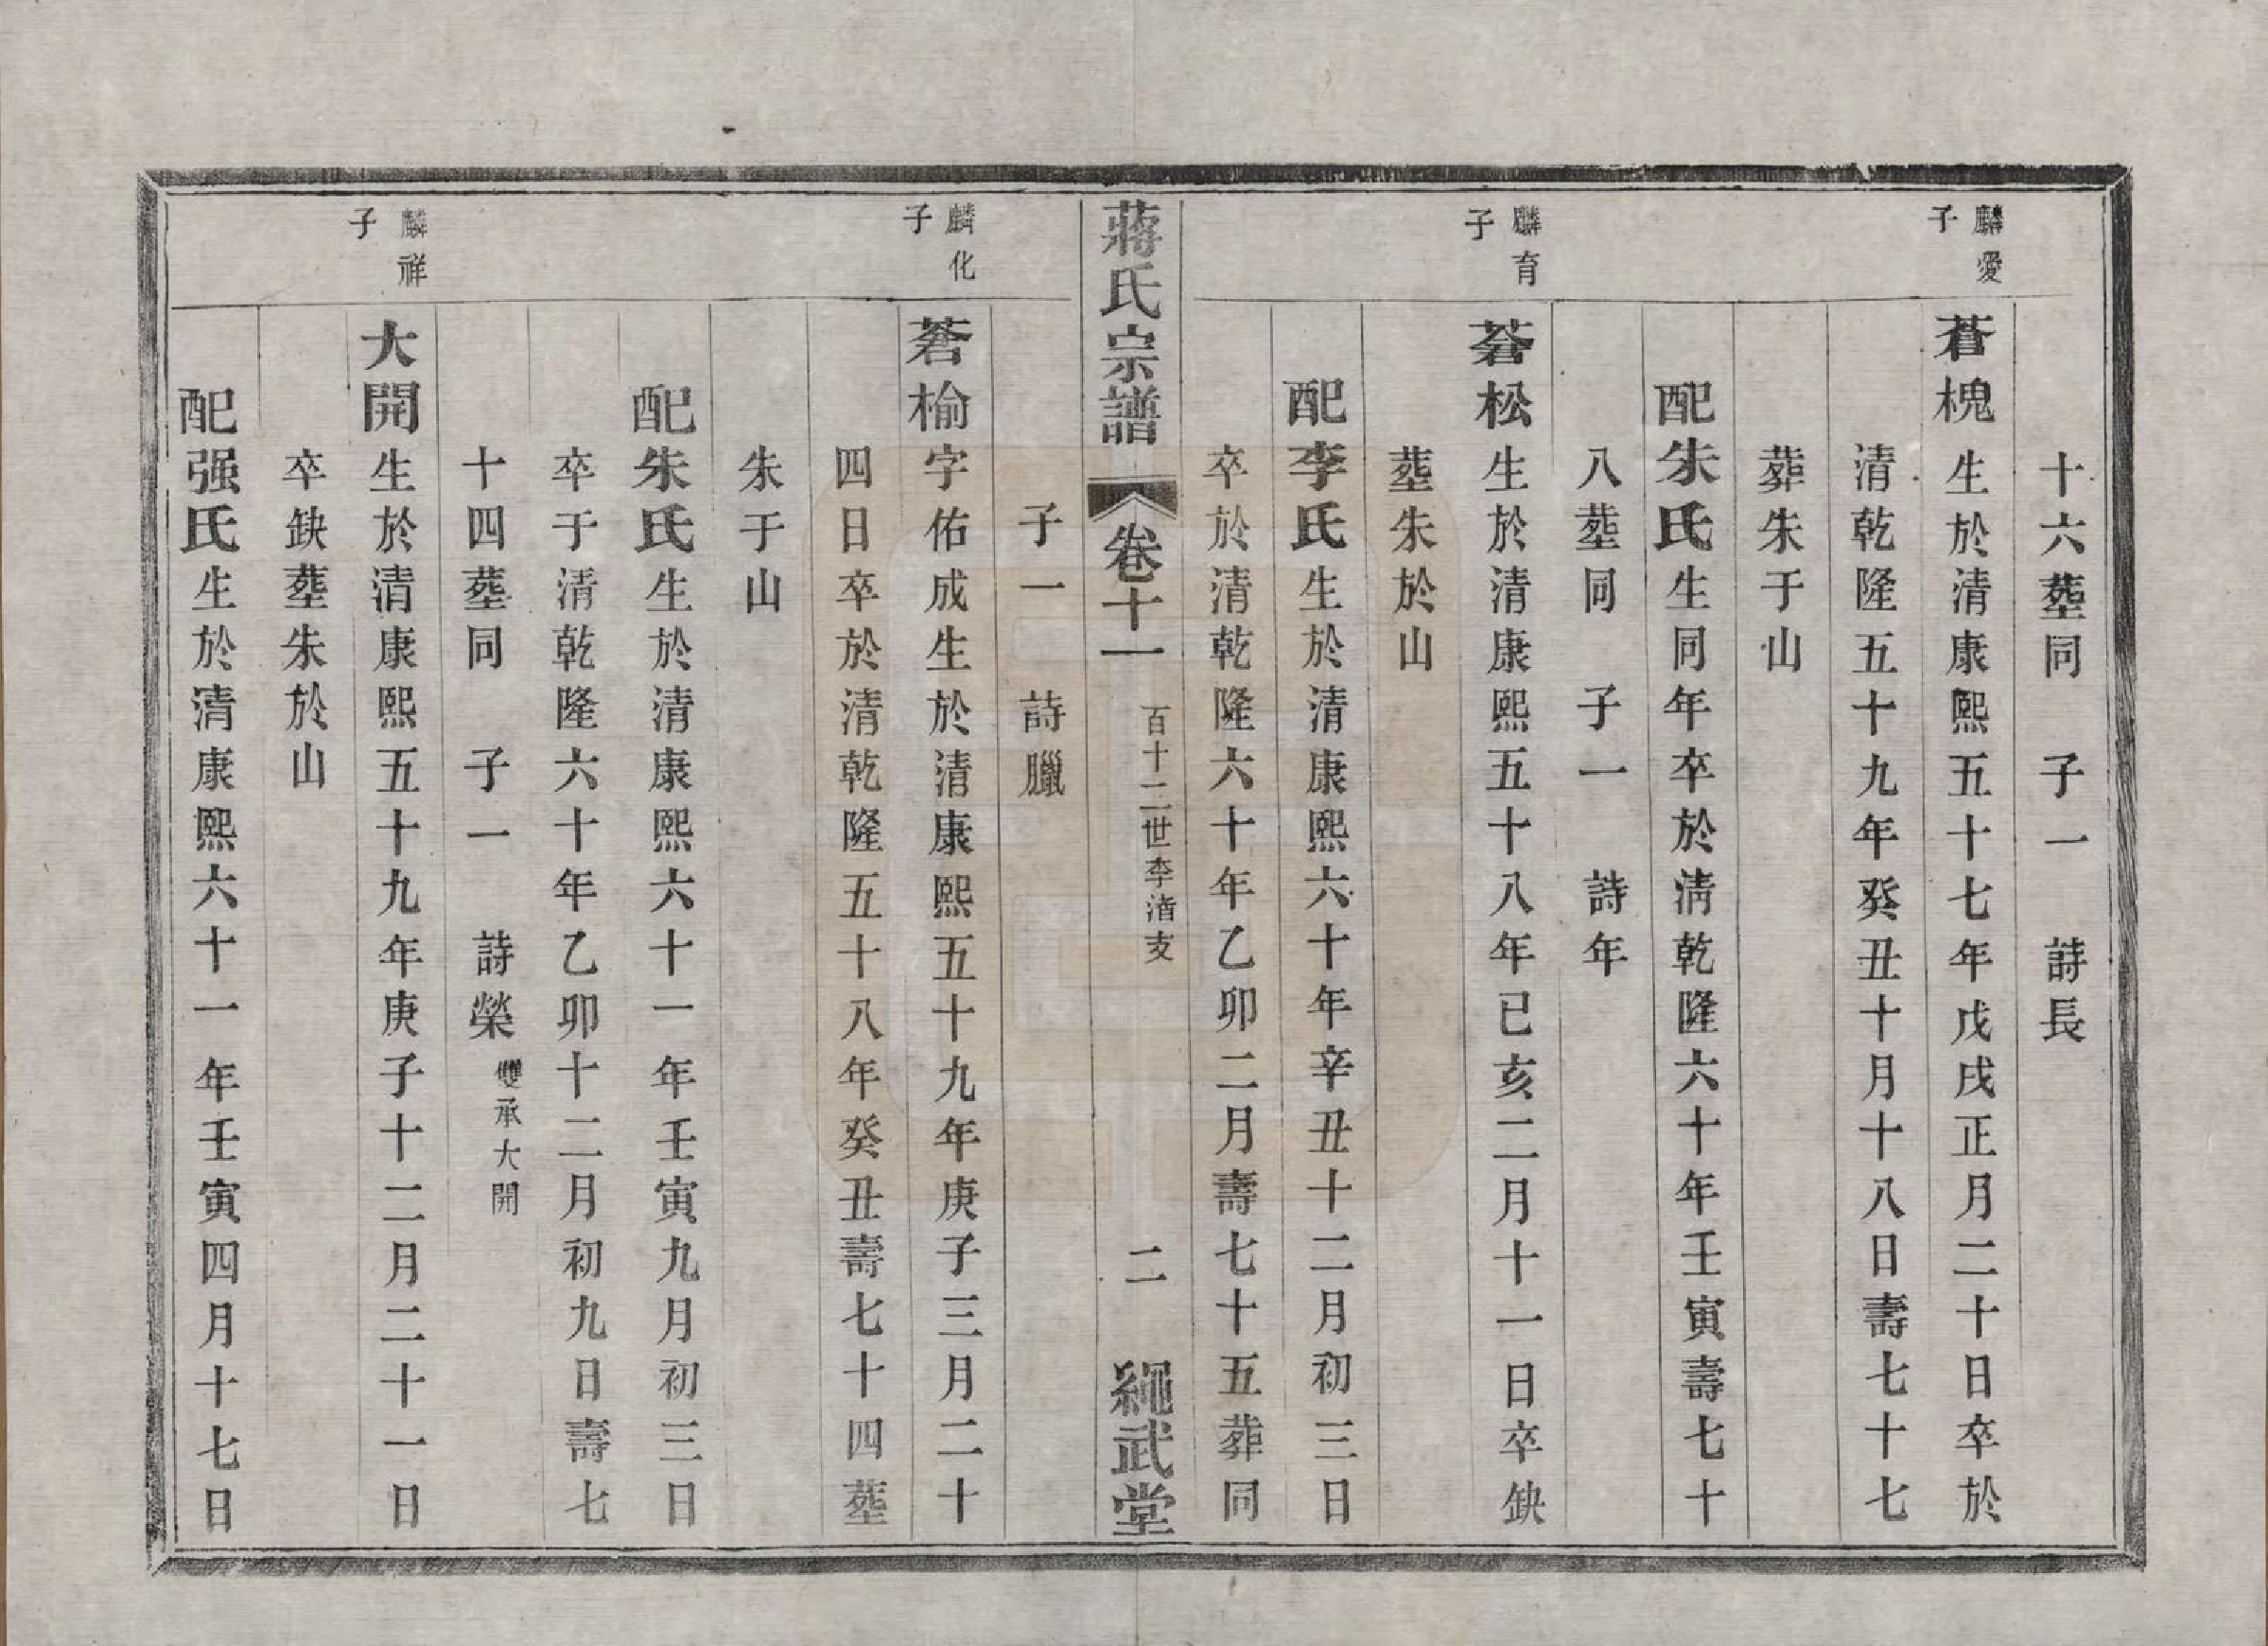 十六塟同　子一　詩長
麟愛子
蒼槐生於清康熙五十七年戊戌正月二十日卒於
清乾隆五十九年癸丑十月十八日壽七十七
葬朱于山
配朱氏生同年卒於清乾隆六十年壬寅壽七十
八塟同　子一　詩年
麟育子
蒼松生於清康熙五十八年已亥二月十一日卒缺
塟朱於山
配李氏生於清康熙六十年辛丑十二月初三日
卒於清乾隆六十年乙卯二月壽七十五葬同
蔣氏宗譜　卷十一　百十二世李渚支　二　繩武堂
子一　詩臘
麟化子
蒼榆字佑成生於清康熙五十九年庚子三月二十
四日卒於清乾隆五十八年癸丑壽七十四塟
朱于山
配朱氏生於清康熙六十一年壬寅九月初三日
卒于清乾隆六十年乙卯十二月初九日壽七
十四塟同　子一　詩榮雙承大開
麟祥子
大開生於清康熙五十九年庚子十二月二十一日
卒缺塟朱於山
配强氏生於清康熙六十一年壬寅四月十七日